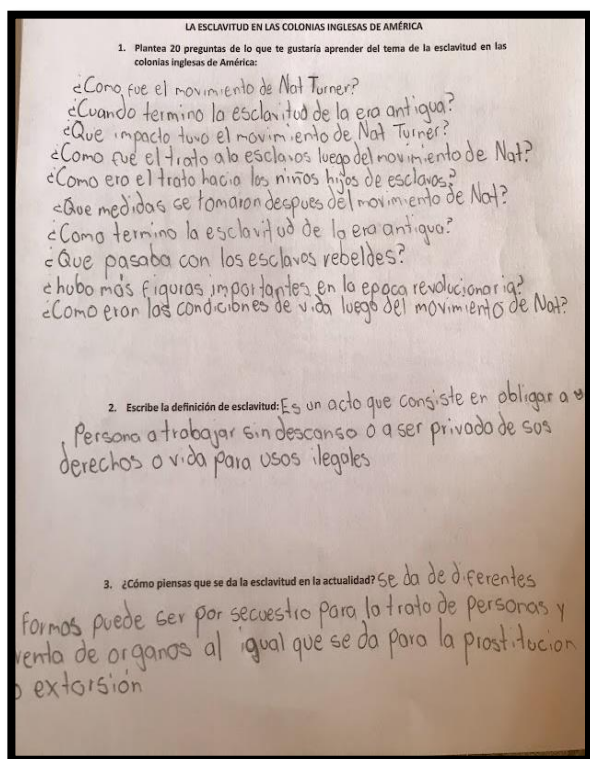 LA ESCLAVITUD EN LAS COLONIAS INGLESAS DE AMÉRICA
1. Plantea 20 preguntas de lo que te gustaría aprender del tema de la esclavitud en las
colonias inglesas de América:
¿Como fue el movimiento de Nat Turner?
¿Cuando termino la esclavitud de la era antigua?
¿Que impacto tuvo el movimiento de Nat Turner?
¿Como fue el trato a lo esclavos luego del movimiento de Nat?
¿Como era el trato hacia los niños hijos de esclavos?
¿Que medidas se tomaron despues del movimiento de Nat?
¿Como termino la esclavitud de la era antigua?
¿Que pasaba con los esclavos rebeldes?
¿hubo más figuras importantes en la epoca revolucionaria?
¿Como eran las condiciones de vida luego del movimiento de Nat?
2. Escribe la definición de esclavitud: Es un acto que consiste en obligar a
Persona a trabajar sin descanso o a ser privado de sus
derechos o vida para usos ilegales
3. ¿Cómo piensas que se da la esclavitud en la actualidad? Se da de diferentes
formas puede ser por secuestro para la trata de personas y
venta de organos al igual que se da para la prostitucion
o extorsión